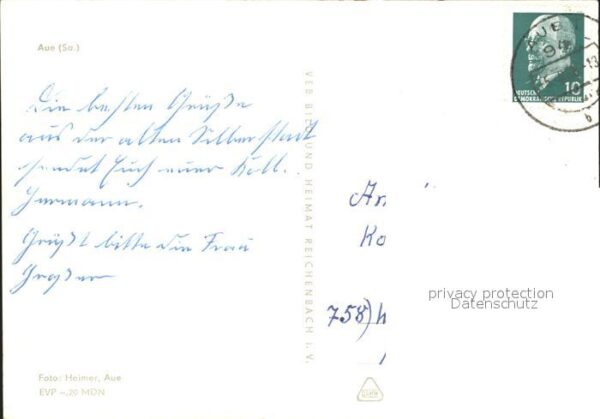 Aue (Sa.)
Die besten Grüße
aus der alten Silberstadt
sendet Euch euer Koll.
Hermann.
Grüßt bitte die Frau
Großer
Foto: Heimer, Aue
EVP –,20 MDN
VEB BILD UND HEIMAT REICHENBACH I. V.
AUE
94
10
DEUTSCHE
DEMOKRATISCHE REPUBLIK
b
An
Ko
758)
privacy protection
Datenschutz